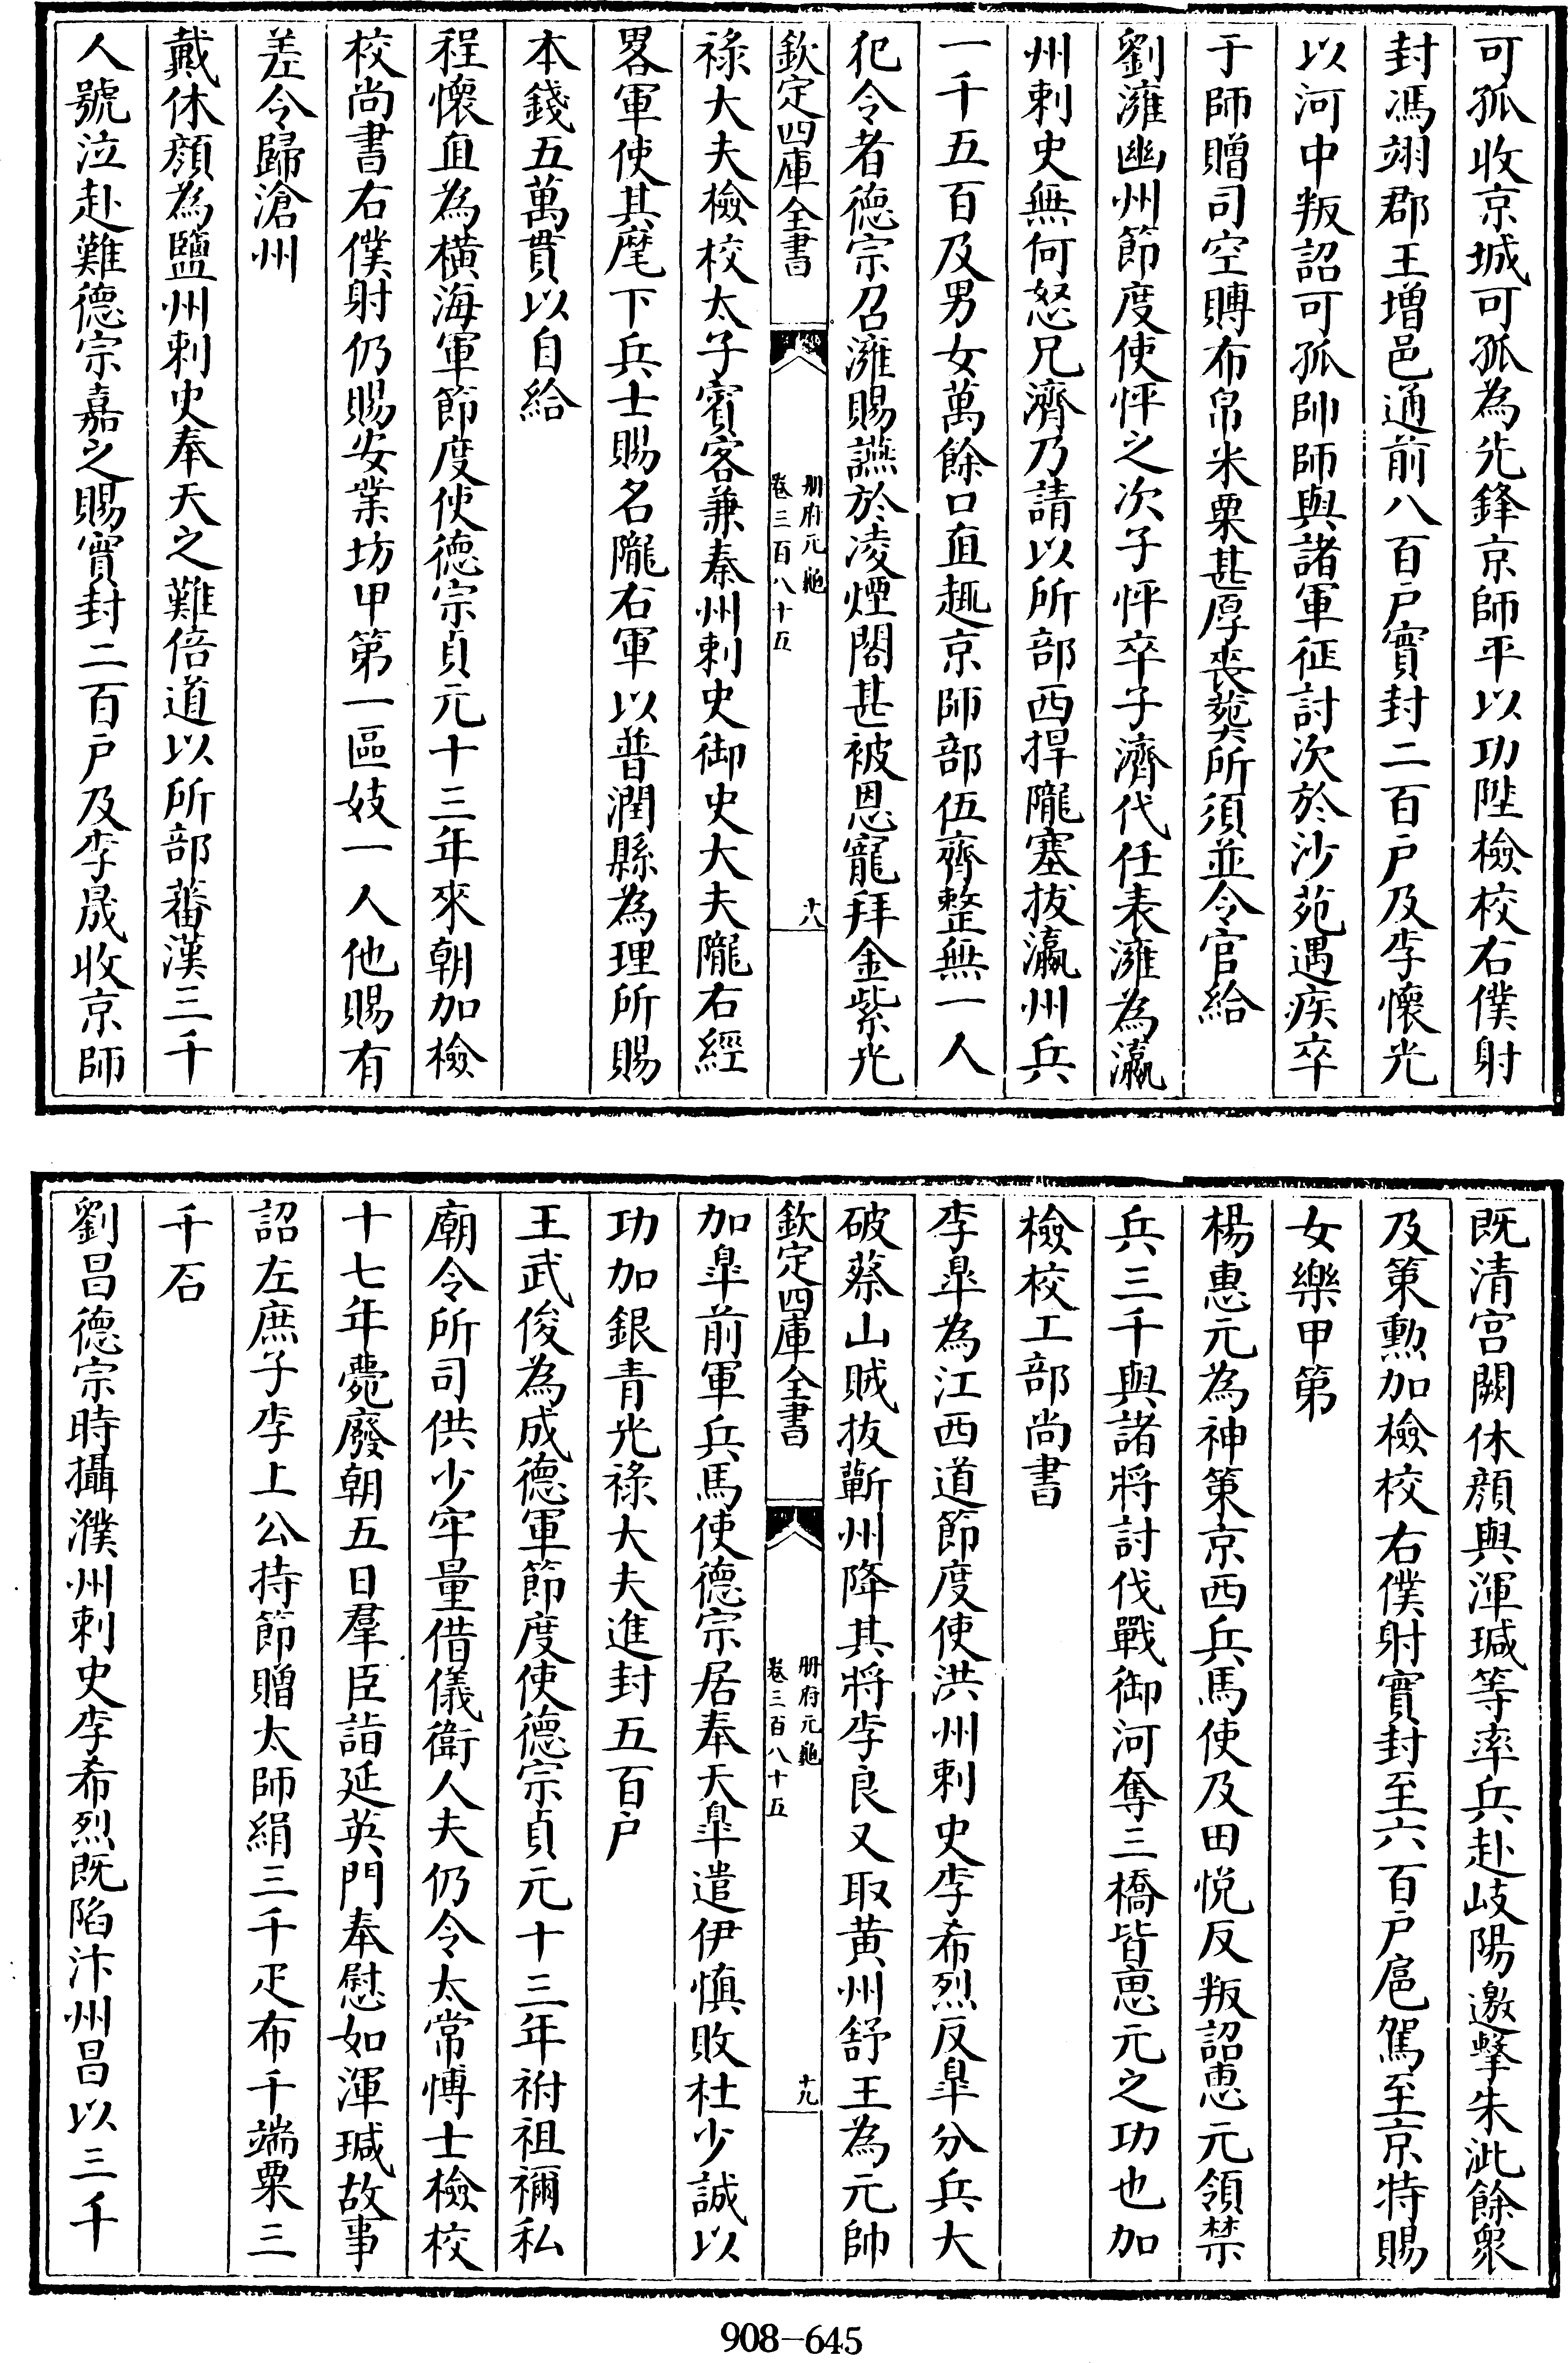 可孤收京城可孤為先鋒京師平以功陞檢校右僕射
封馮翊郡王增邑通前八百户實封二百户及李懷光
以河中叛詔可孤帥師與諸軍征討次於沙苑遇疾卒
于師贈司空賻布帛米粟甚厚喪葬所須並令官給
劉澭幽州節度使怦之次子怦卒子濟代任表澭為瀛
州刺史無何怒兄濟乃請以所部西捍隴塞拔瀛州兵
一千五百及男女萬餘口直趣京師部伍齊整無一人
犯令者德宗召澭賜讌於凌煙閣甚被恩寵拜金紫光
欽定四庫全書
册府元龜
卷三百八十五
十八
祿大夫檢校太子賓客兼秦州刺史御史大夫隴右經
畧軍使其麾下兵士賜名隴右軍以普潤縣為理所賜
本錢五萬貫以自給
程懷直為橫海軍節度使德宗貞元十三年來朝加檢
校尚書右僕射仍賜安業坊甲第一區妓一人他賜有
差令歸滄州
戴休顔為鹽州刺史奉天之難倍道以所部蕃漢三千
人號泣赴難德宗嘉之賜實封二百户及李晟收京師
既清宫闕休顔與渾瑊等率兵赴岐陽邀擊朱泚餘衆
及策勲加檢校右僕射實封至六百户扈駕至京特賜
女樂甲第
楊惠元為神策京西兵馬使及田悦反叛詔惠元領禁
兵三千與諸將討伐戰御河奪三橋皆惠元之功也加
檢校工部尚書
李臯為江西道節度使洪州刺史李希烈反臯分兵大
破蔡山賊拔蘄州降其將李良又取黄州舒王為元帥
欽定四庫全書
册府元龜
卷三百八十五
十九
加臯前軍兵馬使德宗居奉天臯遣伊慎敗杜少誠以
功加銀青光祿大夫進封五百户
王武俊為成德軍節度使德宗貞元十三年祔祖禰私
廟令所司供少牢量借儀衛人夫仍令太常博士檢校
十七年薨廢朝五日羣臣詣延英門奉慰如渾瑊故事
詔左庶子李上公持節贈太師絹三千疋布千端粟三
千石
劉昌德宗時攝濮州刺史李希烈既陷汴州昌以三千
908-645